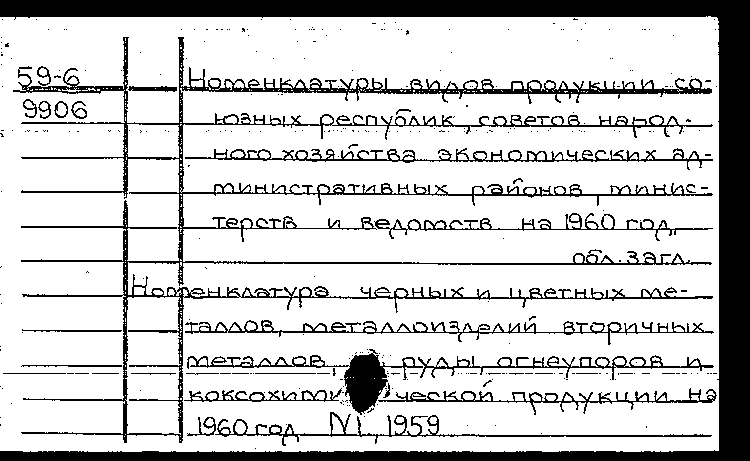 59-6
9906
Номенклатуры видов продукции, со-
юзных республик, советов народ-
ного хозяйства экономических ад-
министративных районов, минис-
терств и ведомств на 1960 год,
обл. загл.
Номенклатура черных и цветных ме-
таллов, металлоизделий вторичных
металлов, руды, огнеупоров и
коксохимической продукции на
1960 год М., 1959